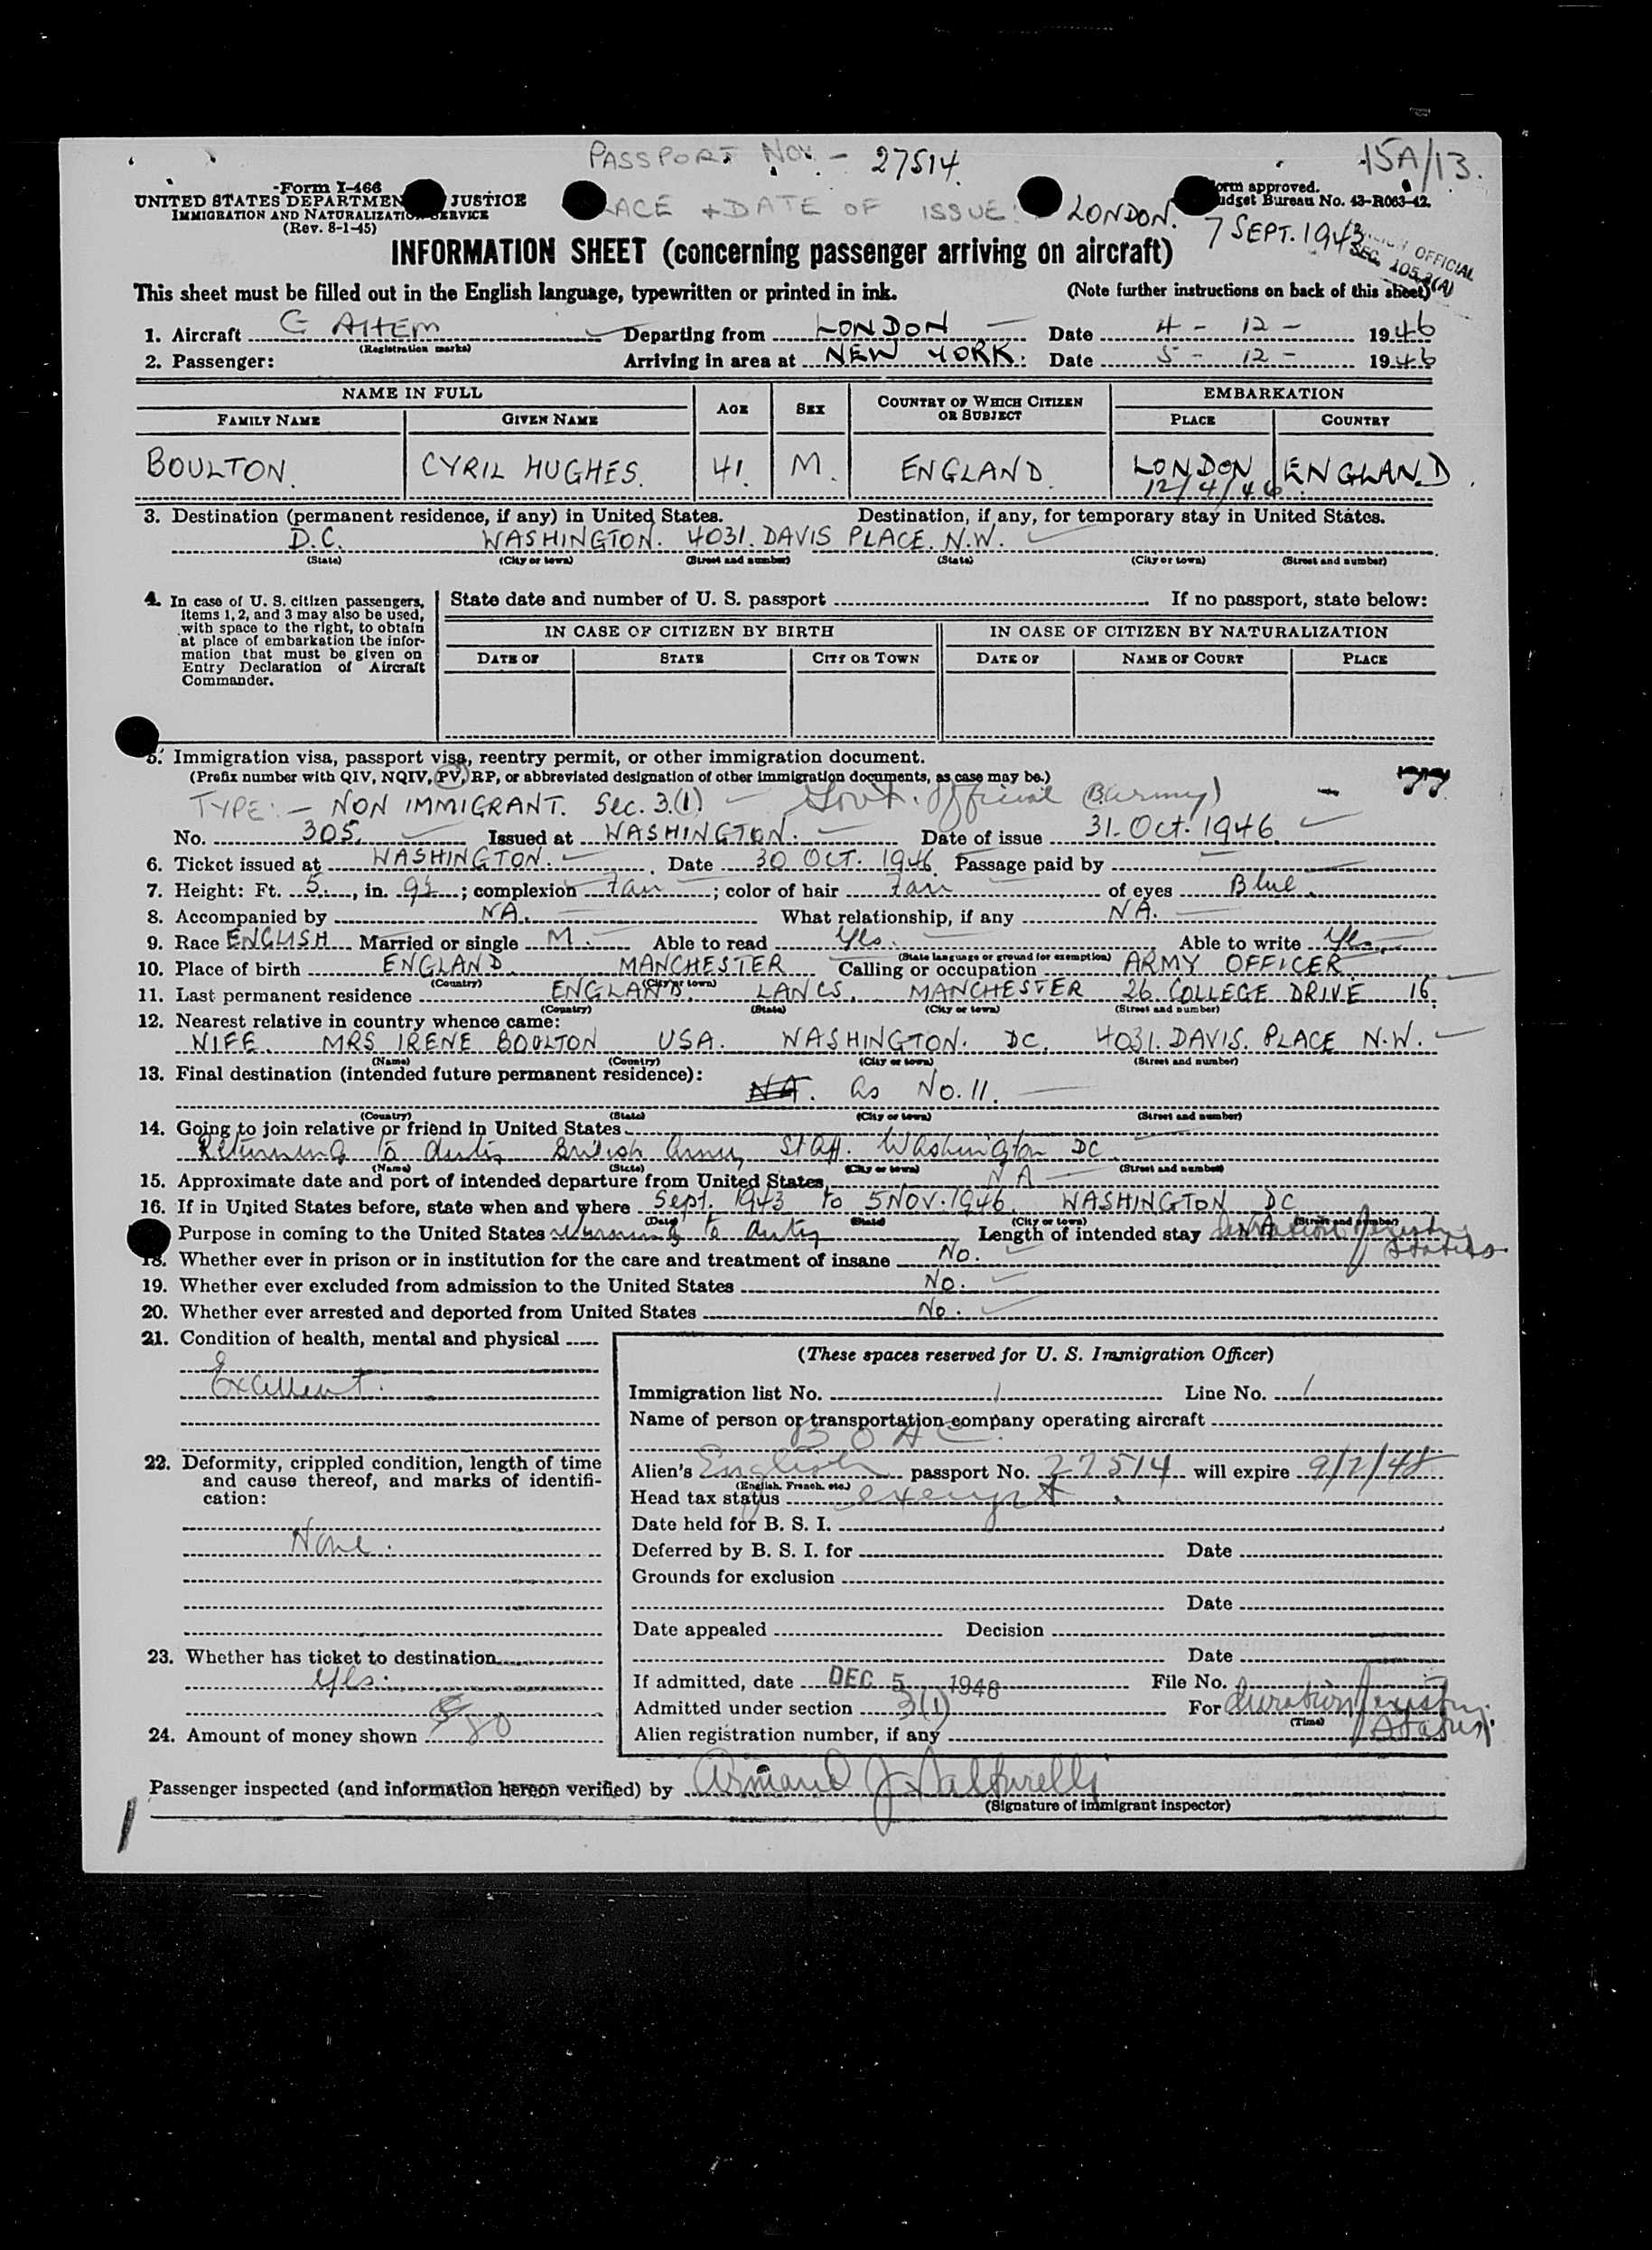 PASSPORT No. - 27514.
15A/13.
Form I-466
UNITED STATES DEPARTMEN JUSTICE
IMMIGRATION AND NATURALIZATION SERVICE
(Rev. 8-1-45)
ACE + DATE OF ISSUE: LONDON.
7 SEPT. 1943
orm approved.
udget Bureau No. 43-R063-42.
OFFICIAL
SEC. 105.3(A)
INFORMATION SHEET (concerning passenger arriving on aircraft)
This sheet must be filled out in the English language, typewritten or printed in ink. (Note further instructions on back of this sheet)
1. Aircraft G AHEM Departing from LONDON Date 4 - 12 - 1946
(Registration marks)
2. Passenger: Arriving in area at NEW YORK: Date 5 - 12 - 1946
NAME IN FULL AGE SEX COUNTRY OF WHICH CITIZEN OR SUBJECT EMBARKATION
FAMILY NAME GIVEN NAME PLACE COUNTRY
BOULTON. CYRIL HUGHES. 41. M. ENGLAND. LONDON ENGLAND.
12/4/46
3. Destination (permanent residence, if any) in United States. Destination, if any, for temporary stay in United States.
D.C. WASHINGTON. 4031. DAVIS PLACE. N.W.
(State) (City or town) (Street and number) (State) (City or town) (Street and number)
4. In case of U. S. citizen passengers, items 1, 2, and 3 may also be used, with space to the right, to obtain at place of embarkation the information that must be given on Entry Declaration of Aircraft Commander.
State date and number of U. S. passport If no passport, state below:
IN CASE OF CITIZEN BY BIRTH IN CASE OF CITIZEN BY NATURALIZATION
DATE OF STATE CITY OR TOWN DATE OF NAME OF COURT PLACE
5. Immigration visa, passport visa, reentry permit, or other immigration document.
(Prefix number with QIV, NQIV, PV, RP, or abbreviated designation of other immigration documents, as case may be.)
77
TYPE: - NON IMMIGRANT. Sec. 3.(1) Govt. Official (B. army)
No. 305. Issued at WASHINGTON. Date of issue 31. Oct. 1946.
6. Ticket issued at WASHINGTON. Date 30 OCT. 1946. Passage paid by
7. Height: Ft. 5, in. 9½; complexion Fair; color of hair Fair of eyes Blue.
8. Accompanied by NA. What relationship, if any NA.
9. Race ENGLISH Married or single M. Able to read Yes. Able to write Yes.
(State language or ground for exemption)
10. Place of birth ENGLAND. MANCHESTER Calling or occupation ARMY OFFICER.
(Country) (City or town)
11. Last permanent residence ENGLAND. LANCS. MANCHESTER 26. COLLEGE DRIVE 16.
(Country) (State) (City or town) (Street and number)
12. Nearest relative in country whence came:
WIFE. MRS IRENE BOULTON USA. WASHINGTON. DC. 4031. DAVIS. PLACE N.W.
(Name) (Country) (City or town) (Street and number)
13. Final destination (intended future permanent residence):
NA. as No. 11.
(Country) (State) (City or town) (Street and number)
14. Going to join relative or friend in United States
Returning to duty British Army Staff. Washington DC.
(Name) (State) (City or town) (Street and number)
15. Approximate date and port of intended departure from United States NA
16. If in United States before, state when and where Sept. 1943 to 5 NOV. 1946. WASHINGTON DC
(Date) (State) (City or town) (Street and number)
Purpose in coming to the United States returning to duty Length of intended stay NA duration of existing status.
18. Whether ever in prison or in institution for the care and treatment of insane No.
19. Whether ever excluded from admission to the United States No.
20. Whether ever arrested and deported from United States No.
21. Condition of health, mental and physical
Excellent.
22. Deformity, crippled condition, length of time and cause thereof, and marks of identification:
None.
23. Whether has ticket to destination
Yes.
24. Amount of money shown $80
(These spaces reserved for U. S. Immigration Officer)
Immigration list No. 1 Line No. 1
Name of person or transportation company operating aircraft
B O A C.
Alien's English passport No. 27514 will expire 9/7/48
(English, French, etc.)
Head tax status exempt.
Date held for B. S. I.
Deferred by B. S. I. for Date
Grounds for exclusion
Date
Date appealed Decision
Date
If admitted, date DEC 5 1946 File No.
Admitted under section 3(1) For duration of existing status.
(Time)
Alien registration number, if any
Passenger inspected (and information hereon verified) by Armand J.
(Signature of immigrant inspector)